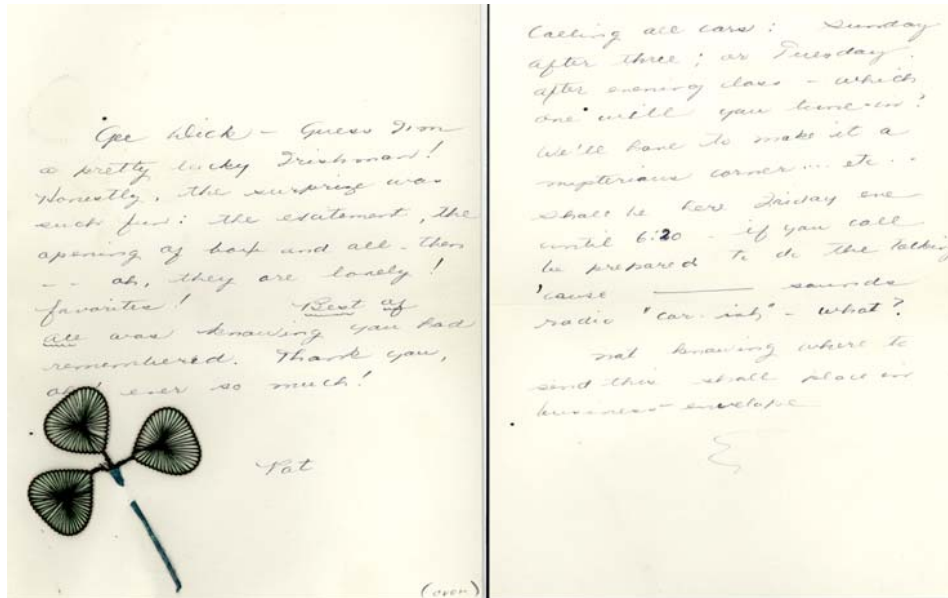 Gee Dick – Guess I'm
a pretty lucky Irishman!
Honestly, the surprize was
such fun: the exatement, the
opening of box and all – then
-- oh, they are lonely!
favorites! Best of
all was knowing you had
remembered. Thank you,
oh! ever so much!
Pat
(over)
Calling all cars: Sunday
after three; or Tuesday
after evening class – which
one will you tune-in?
We'll have to make it a
mysterious corner... etc...
Shall be here Friday one
until 6:20 – if you call
be prepared to do the talking
'cause ——— sounds
radio "car-ish" – what?
Not knowing where to
send this shall place in
business envelope